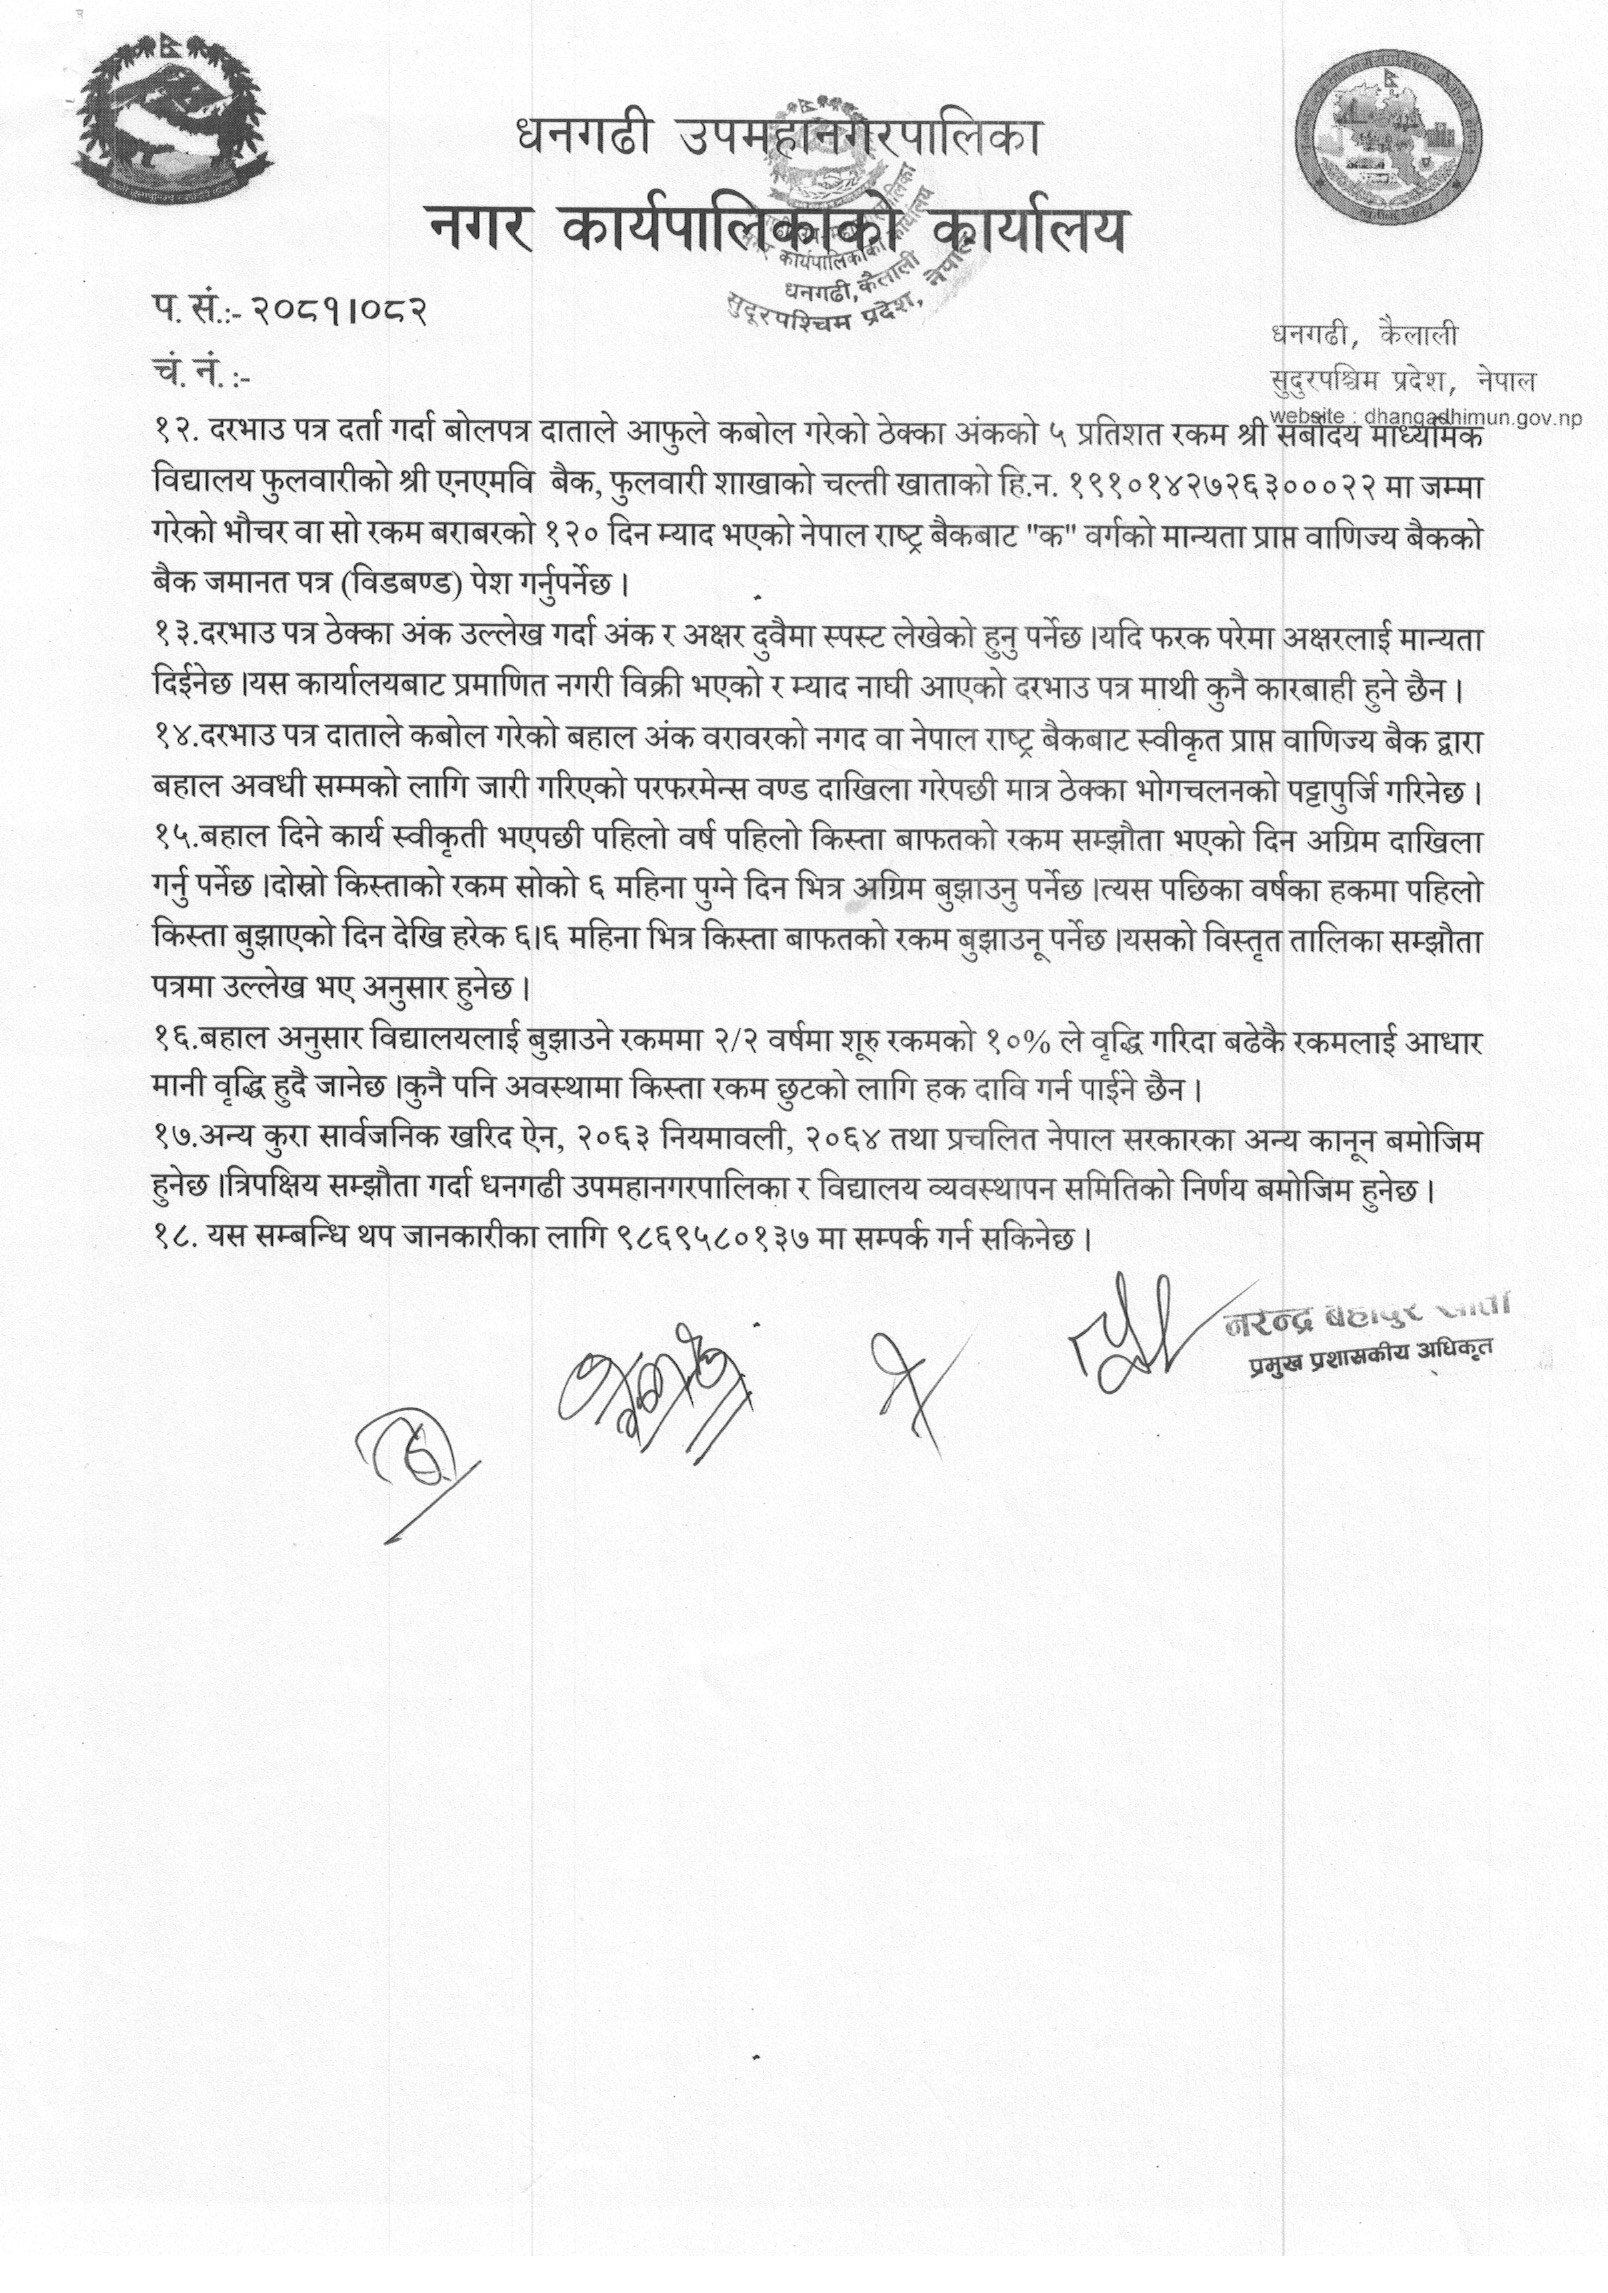 धनगढी उपमहानगरपालिका
नगर कार्यपालिकाको कार्यालय
धनगढी, कैलाली
सुदूरपश्चिम प्रदेश, नेपाल
प. सं.:- २०८१।०८२
चं. नं. :-
धनगढी, कैलाली
सुदुरपश्चिम प्रदेश, नेपाल
website : dhangadhimun.gov.np
१२. दरभाउ पत्र दर्ता गर्दा बोलपत्र दाताले आफुले कबोल गरेको ठेक्का अंकको ५ प्रतिशत रकम श्री सर्बोदय माध्यमिक
विद्यालय फुलवारीको श्री एनएमवि बैक, फुलवारी शाखाको चल्ती खाताको हि.न. १९१०१४२७२६३०००२२ मा जम्मा
गरेको भौचर वा सो रकम बराबरको १२० दिन म्याद भएको नेपाल राष्ट्र बैकबाट "क" वर्गको मान्यता प्राप्त वाणिज्य बैकको
बैक जमानत पत्र (विडबण्ड) पेश गर्नुपर्नेछ ।
१३.दरभाउ पत्र ठेक्का अंक उल्लेख गर्दा अंक र अक्षर दुवैमा स्पस्ट लेखेको हुनु पर्नेछ ।यदि फरक परेमा अक्षरलाई मान्यता
दिईनेछ ।यस कार्यालयबाट प्रमाणित नगरी विक्री भएको र म्याद नाघी आएको दरभाउ पत्र माथी कुनै कारबाही हुने छैन ।
१४.दरभाउ पत्र दाताले कबोल गरेको बहाल अंक वरावरको नगद वा नेपाल राष्ट्र बैकबाट स्वीकृत प्राप्त वाणिज्य बैक द्वारा
बहाल अवधी सम्मको लागि जारी गरिएको परफरमेन्स वण्ड दाखिला गरेपछी मात्र ठेक्का भोगचलनको पट्टापुर्जि गरिनेछ ।
१५.बहाल दिने कार्य स्वीकृती भएपछी पहिलो वर्ष पहिलो किस्ता बाफतको रकम सम्झौता भएको दिन अग्रिम दाखिला
गर्नु पर्नेछ ।दोस्रो किस्ताको रकम सोको ६ महिना पुग्ने दिन भित्र अग्रिम बुझाउनु पर्नेछ ।त्यस पछिका वर्षका हकमा पहिलो
किस्ता बुझाएको दिन देखि हरेक ६।६ महिना भित्र किस्ता बाफतको रकम बुझाउनू पर्नेछ ।यसको विस्तृत तालिका सम्झौता
पत्रमा उल्लेख भए अनुसार हुनेछ ।
१६.बहाल अनुसार विद्यालयलाई बुझाउने रकममा २/२ वर्षमा शूरु रकमको १०% ले वृद्धि गरिदा बढेकै रकमलाई आधार
मानी वृद्धि हुदै जानेछ ।कुनै पनि अवस्थामा किस्ता रकम छुटको लागि हक दावि गर्न पाईने छैन ।
१७.अन्य कुरा सार्वजनिक खरिद ऐन, २०६३ नियमावली, २०६४ तथा प्रचलित नेपाल सरकारका अन्य कानून बमोजिम
हुनेछ ।त्रिपक्षिय सम्झौता गर्दा धनगढी उपमहानगरपालिका र विद्यालय व्यवस्थापन समितिको निर्णय बमोजिम हुनेछ ।
१८. यस सम्बन्धि थप जानकारीका लागि ९८६९५८०१३७ मा सम्पर्क गर्न सकिनेछ ।
नरेन्द्र बहादुर
प्रमुख प्रशासकीय अधिकृत